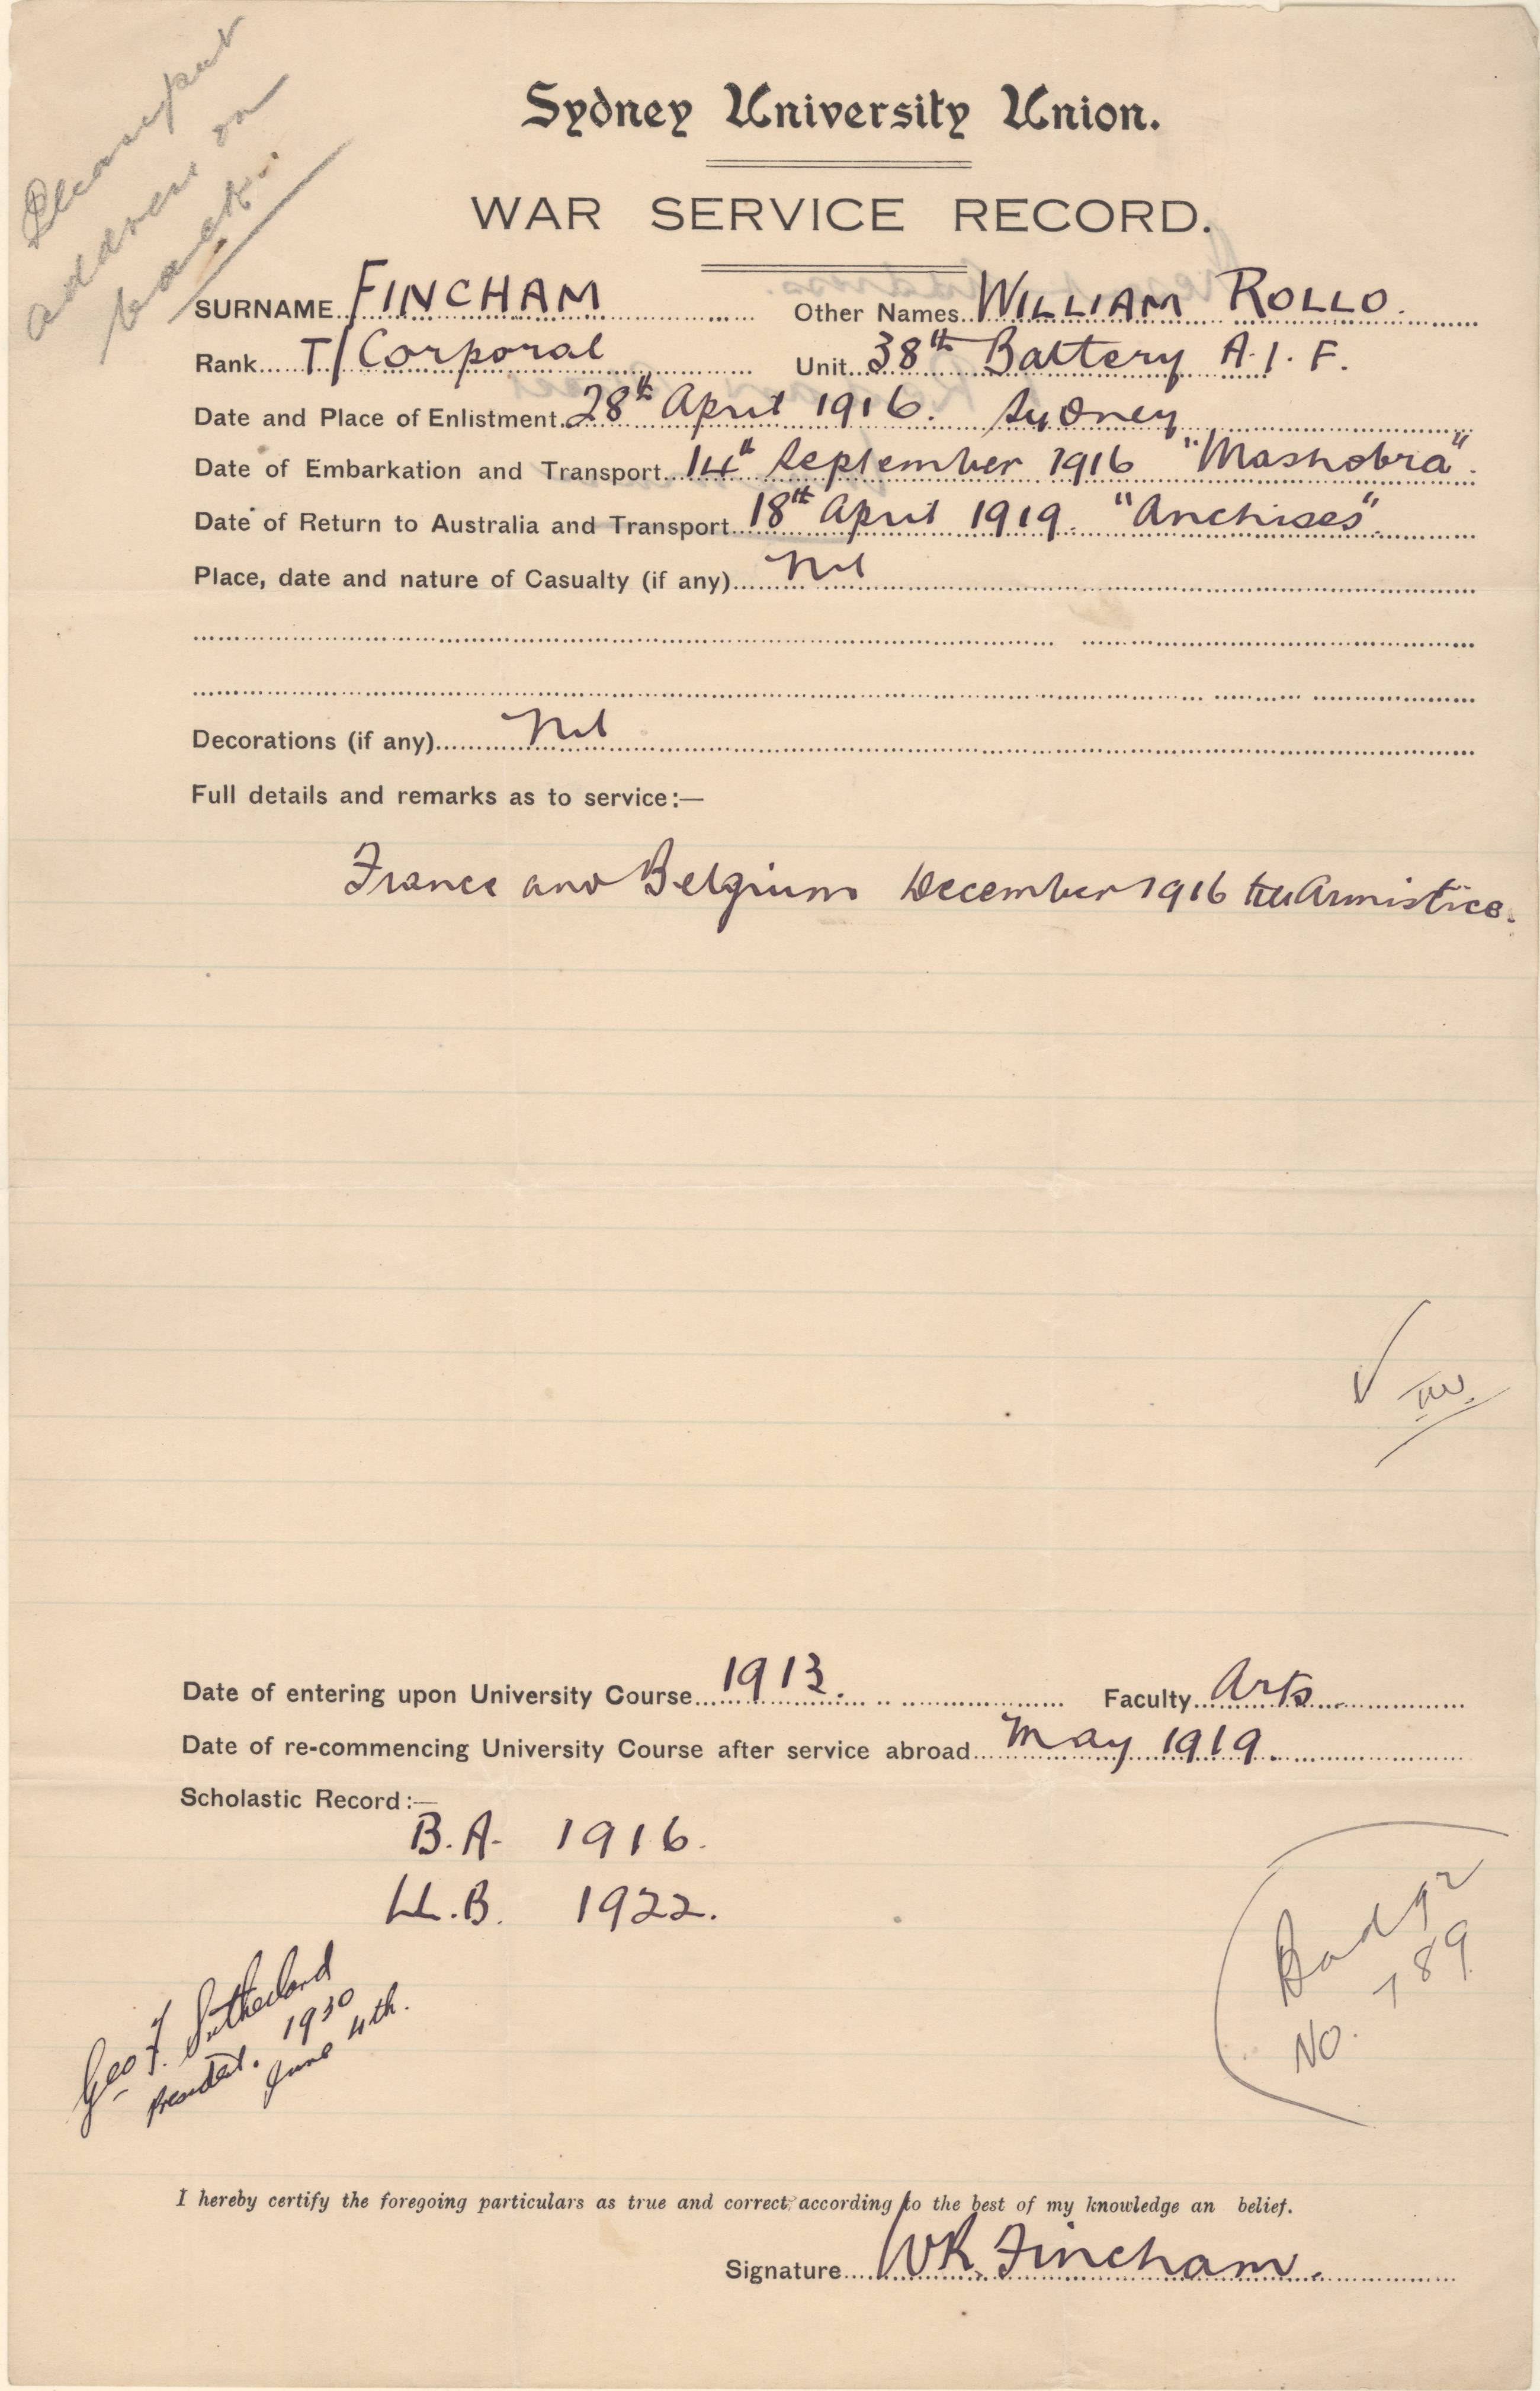 Please put
address on
back.
Sydney University Union.
WAR SERVICE RECORD.
SURNAME FINCHAM Other Names WILLIAM ROLLO.
Rank T/Corporal Unit 38th Battery A.I.F.
Date and Place of Enlistment 28th April 1916. Sydney
Date of Embarkation and Transport 14th September 1916 "Mashobra".
Date of Return to Australia and Transport 18th April 1919. "Anchises".
Place, date and nature of Casualty (if any) Nil
Decorations (if any) Nil
Full details and remarks as to service:—
France and Belgium December 1916 till Armistice.
Date of entering upon University Course 1913. Faculty Arts
Date of re-commencing University Course after service abroad May 1919.
Scholastic Record:—
B.A. 1916.
LL.B. 1922.
Badge
No. 789
Geo F. Sutherland
President. 1930
June 4th.
I hereby certify the foregoing particulars as true and correct according to the best of my knowledge an belief.
Signature WR Fincham.